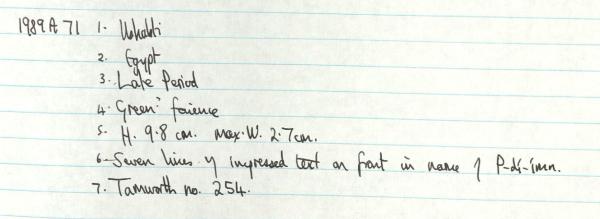 1989 A 71 1. Ushabti
2. Egypt
3. Late Period
4. Green faience
5. H. 9.8 cm. max. W. 2.7cm.
6. Seven lines of impressed text on front in name of P-di-imn.
7. Tamworth no. 254.